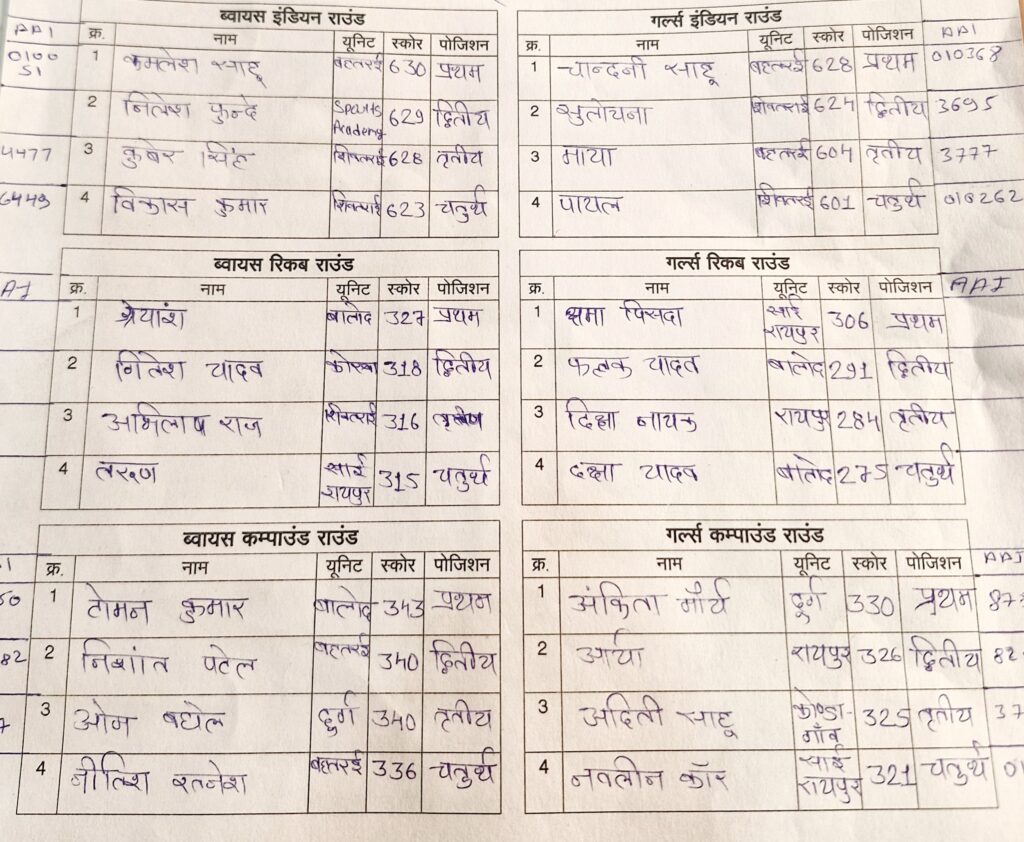 ब्वायस इंडियन राउंड
AAI क्र. नाम यूनिट स्कोर पोजिशन
010051 1 कमलेश साहू बहतराई 630 प्रथम
2 निलेश कुन्दे Sports Academy 629 द्वितीय
4477 3 कुबेर सिंह शिवतराई 628 तृतीय
6449 4 विकास कुमार शिवतराई 623 चतुर्थ
गर्ल्स इंडियन राउंड
क्र. नाम यूनिट स्कोर पोजिशन AAI
1 चान्दनी साहू बहतराई 628 प्रथम 010368
2 सुलोचना शिवतराई 624 द्वितीय 3695
3 माया बहतराई 604 तृतीय 3777
4 पायल शिवतराई 601 चतुर्थ 010262
ब्वायस रिकब राउंड
क्र. नाम यूनिट स्कोर पोजिशन
1 श्रेयांश बालोद 327 प्रथम
2 गितेश यादव कोरबा 318 द्वितीय
3 अभिलाष राज शिवतराई 316 तृतीय
4 तरूण साई रायपुर 315 चतुर्थ
गर्ल्स रिकब राउंड
क्र. नाम यूनिट स्कोर पोजिशन AAI
1 क्षमा पिसदा साई रायपुर 306 प्रथम
2 फलक यादव बालोद 291 द्वितीय
3 दिक्षा नायक रायपुर 284 तृतीय
4 दक्षा यादव बालोद 275 चतुर्थ
ब्वायस कम्पाउंड राउंड
क्र. नाम यूनिट स्कोर पोजिशन
50 1 टोमन कुमार बालोद 343 प्रथम
82 2 निशांत पटेल बहतराई 340 द्वितीय
7 3 ओम बघेल दुर्ग 340 तृतीय
4 बहतराई 336 चतुर्थ
गर्ल्स कम्पाउंड राउंड
क्र. नाम यूनिट स्कोर पोजिशन AAI
1 अंकिता मौर्य दुर्ग 330 प्रथम 87
2 आर्या रायपुर 326 द्वितीय 82
3 अदिती साहू कोण्डा-गाँव 325 तृतीय 37
4 नवलीन कौर साई रायपुर 321 चतुर्थ 01